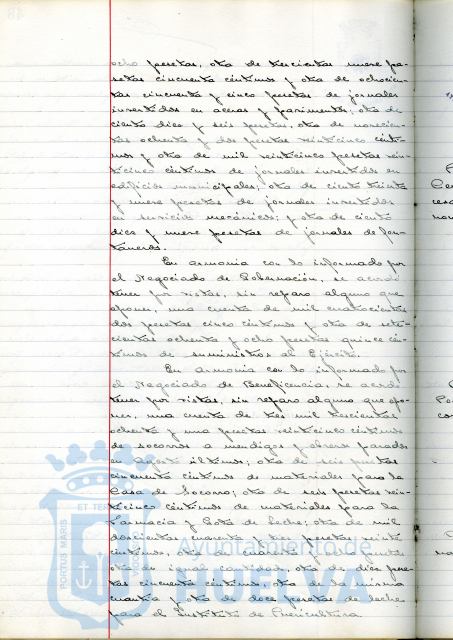 ocho pesetas, otra de trescientas nueve pe-
setas cincuenta céntimos y otra de ochocien-
tas cincuenta y cinco pesetas de jornales
invertidos en aceras y pavimentos; otra de
ciento diez y seis pesetas, otra de novecien-
tas ochenta y dos pesetas veinticinco cénti-
mos y otra de mil veinticinco pesetas vein-
ticinco céntimos de jornales invertidos en
edificios municipales; otra de ciento treinta
y nueve pesetas de jornales invertidos
en servicios mecánicos; y otra de ciento
diez y nueve pesetas de jornales de fon-
taneros.
En armonía con lo informado por
el Negociado de Gobernación, se acordó
tener por vistas, sin reparo alguno que
oponer, una cuenta de mil cuatrocientas
dos pesetas cinco céntimos y otra de sete-
cientas ochenta y ocho pesetas quince cén-
timos de suministros al Ejército.
En armonía con lo informado por
el Negociado de Beneficencia, se acordó
tener por vistas, sin reparo alguno que opo-
ner, una cuenta de tres mil trescientas
ochenta y una pesetas veinticinco céntimos
de socorros a mendigos y obreros parados
en agosto último; otra de seis pesetas
cincuenta céntimos de materiales para la
Casa de Socorro; otra de seis pesetas vein-
ticinco céntimos de materiales para la
Farmacia y Gota de Leche; otra de mil
doscientas cuarenta y tres pesetas veinte
céntimos, otra de cuarenta y pesetas
otra de igual cantidad, otra de diez pese-
tas cincuenta céntimos, otra de la misma
cuantía y otra de doce pesetas de leche
para el Instituto de Puericultura.
PORTUS MARIS
ET TERRAE
Ayuntamiento de
HUELVA